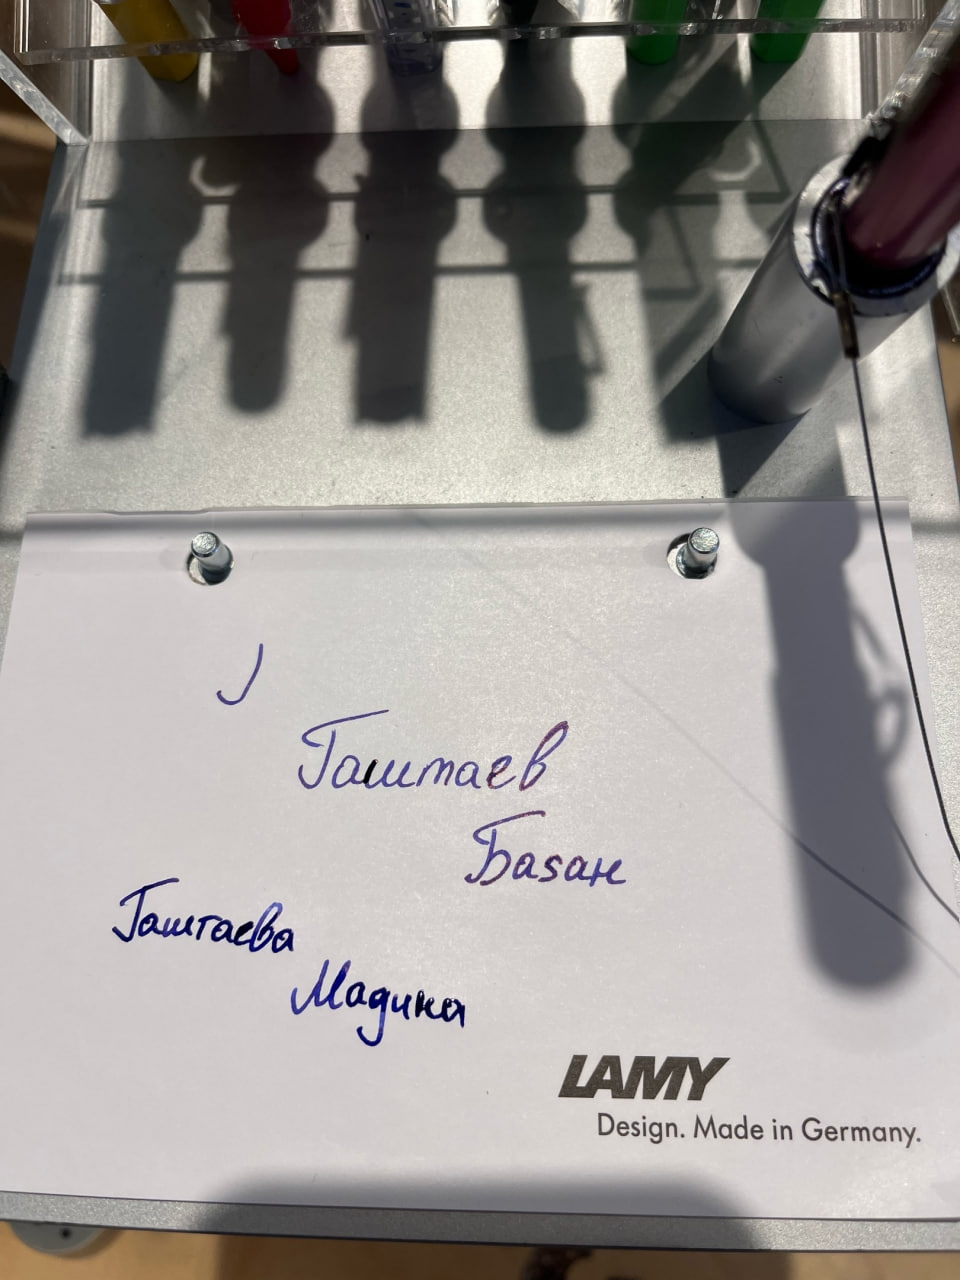 Гаштаев
Базан
Гаштаева
Мадина
LAMY
Design. Made in Germany.